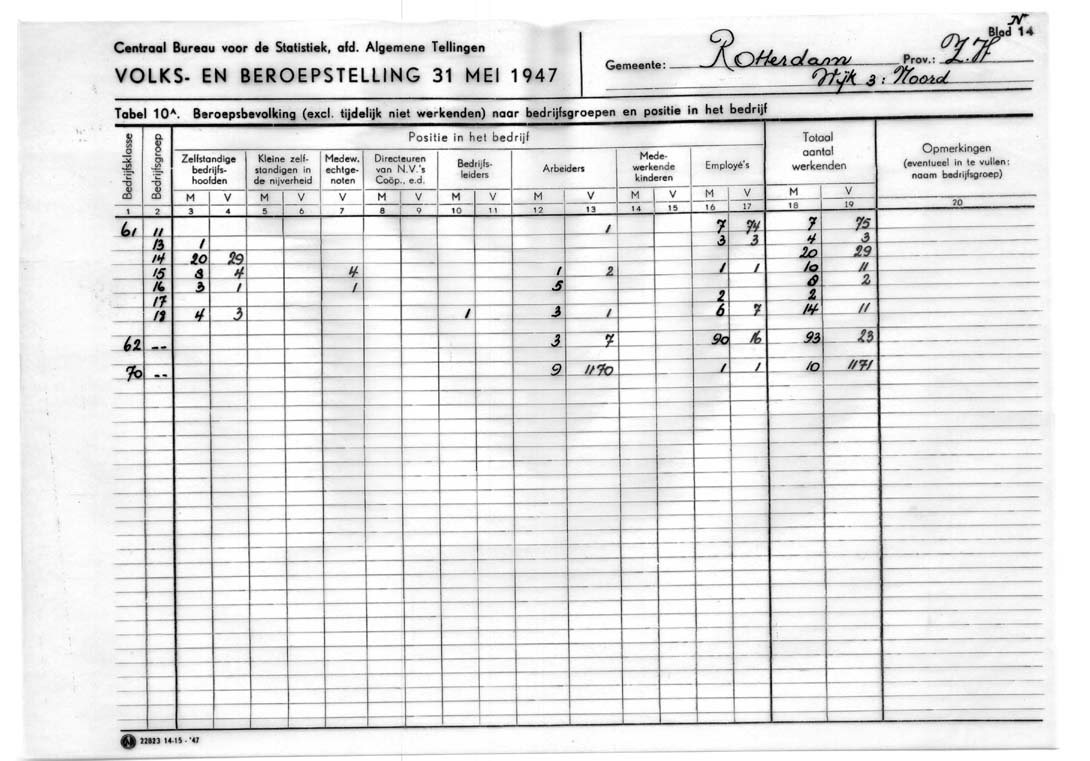 N
Blad 14
Centraal Bureau voor de Statistiek, afd. Algemene Tellingen
VOLKS- EN BEROEPSTELLING 31 MEI 1947
Gemeente: Rotterdam Prov.: Z.H
Wijk 3: Noord
Tabel 10A. Beroepsbevolking (excl. tijdelijk niet werkenden) naar bedrijfsgroepen en positie in het bedrijf
Bedrijfsklasse
Bedrijfsgroep
Positie in het bedrijf
Zelfstandige bedrijfs- hoofden
Kleine zelf- standigen in de nijverheid
Medew. echtge- noten
Directeuren van N.V.'s Coöp., e.d.
Bedrijfs- leiders
Arbeiders
Mede- werkende kinderen
Employé's
Totaal aantal werkenden
Opmerkingen (eventueel in te vullen: naam bedrijfsgroep)
M V M V V M V M V M V M V M V M V
1 2 3 4 5 6 7 8 9 10 11 12 13 14 15 16 17 18 19 20
61 11 1 7 74 7 75
13 1 3 3 4 3
14 20 29 20 29
15 8 4 4 1 2 1 1 10 11
16 3 1 1 5 8 2
17 2 2
18 4 3 1 3 1 6 7 14 11
62 -- 3 7 90 16 93 23
70 -- 9 1170 1 1 10 1171
22823 14-15 - '47